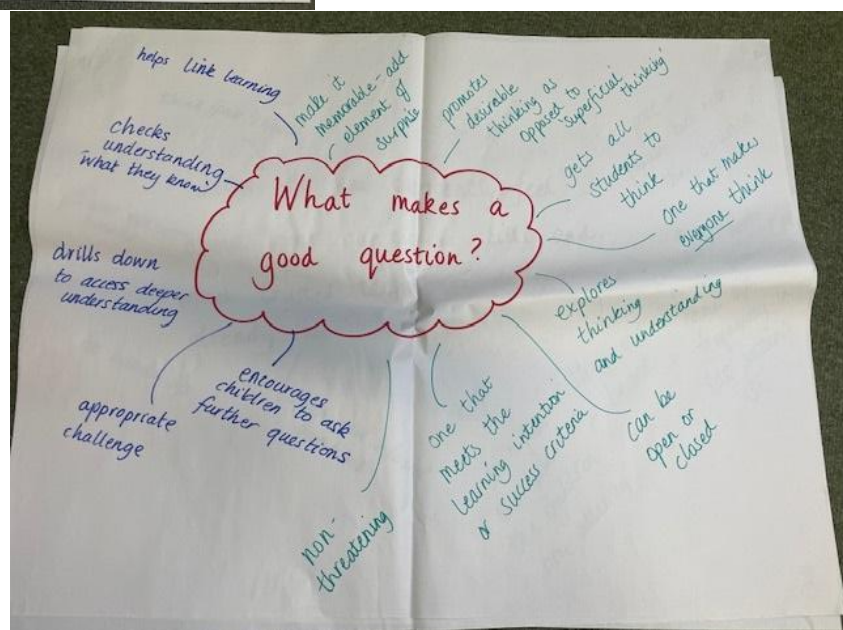 What makes a
good question?
helps link learning
checks
understanding
what they know
drills down
to access deeper
understanding
appropriate
challenge
encourages
children to ask
further questions
make it
memorable - add
element of
surprise
promotes
desirable
thinking as
opposed to 'superficial thinking'
gets all
students to
think
one that makes
everyone think
explores
thinking
and understanding
can be
open or
closed
one that
meets the
learning intention
or success criteria
non-
threatening